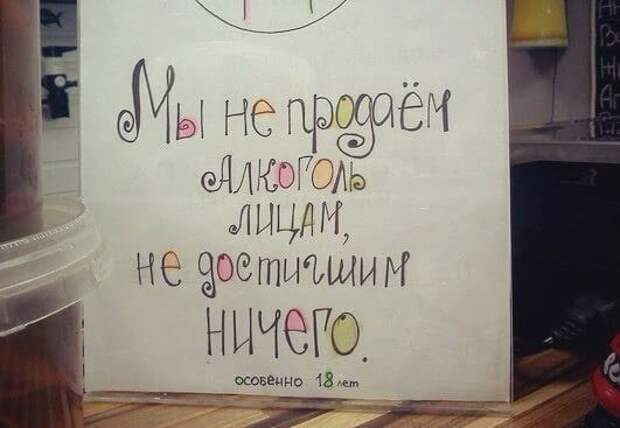 Мы не продаём
алкоголь
лицам,
не достигшим
ничего.
особенно 18 лет